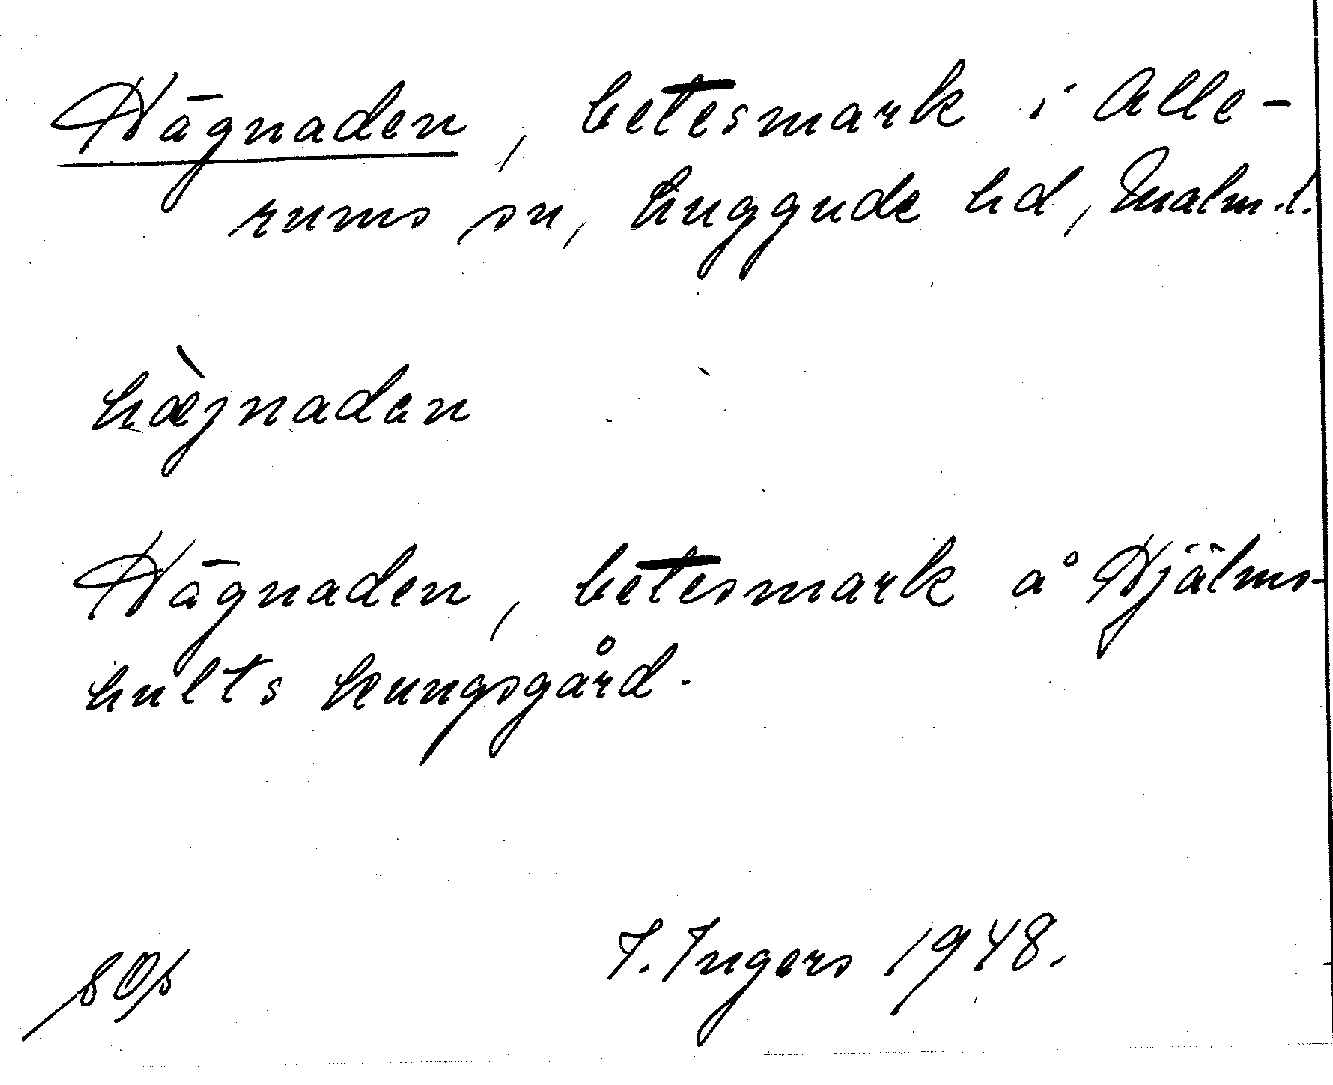 Hägnaden, betesmark i Alle-
rums sn, Luggude hd, Malm.l.
hæ̀jnadan
Hägnaden, betesmark å Hjälms-
hults kungsgård.
I. Ingers 1948.